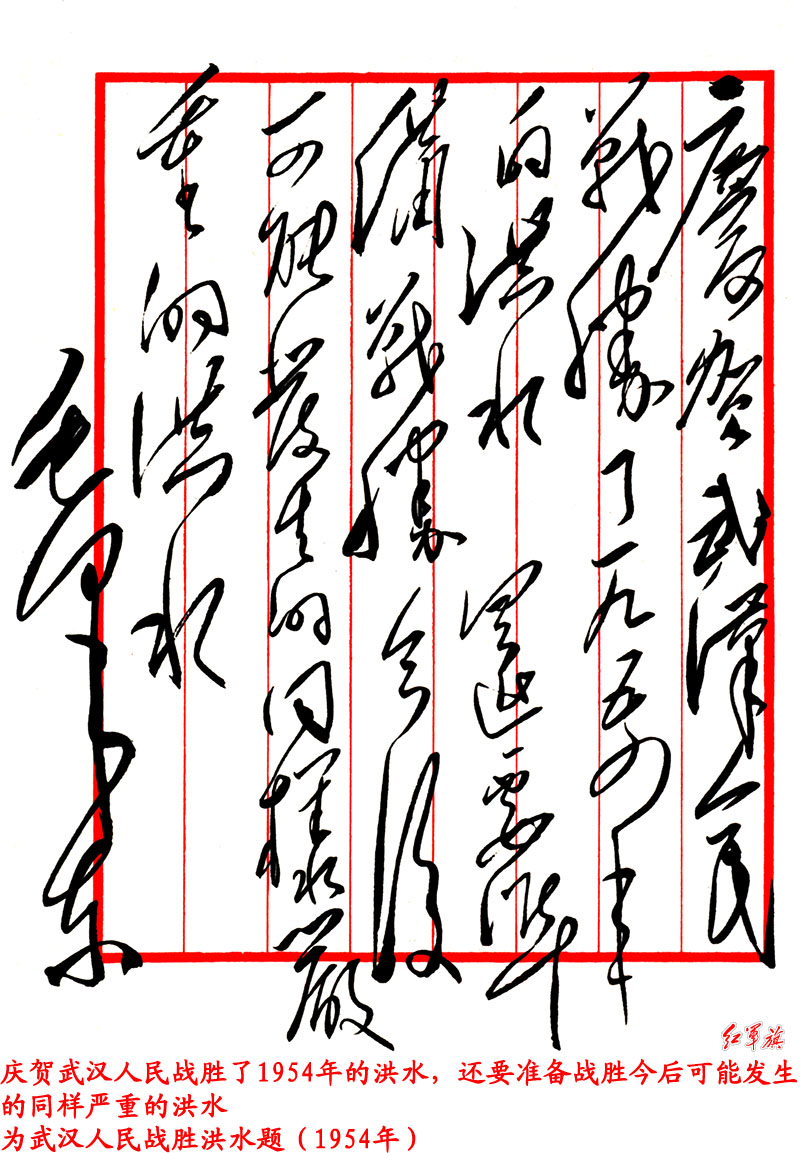 慶賀武漢人民
戰勝了一九五四年
的洪水 還要準
備戰勝今後
可能發生的同樣嚴
重的洪水
毛澤東
红军旗
庆贺武汉人民战胜了1954年的洪水，还要准备战胜今后可能发生
的同样严重的洪水
为武汉人民战胜洪水题（1954年）